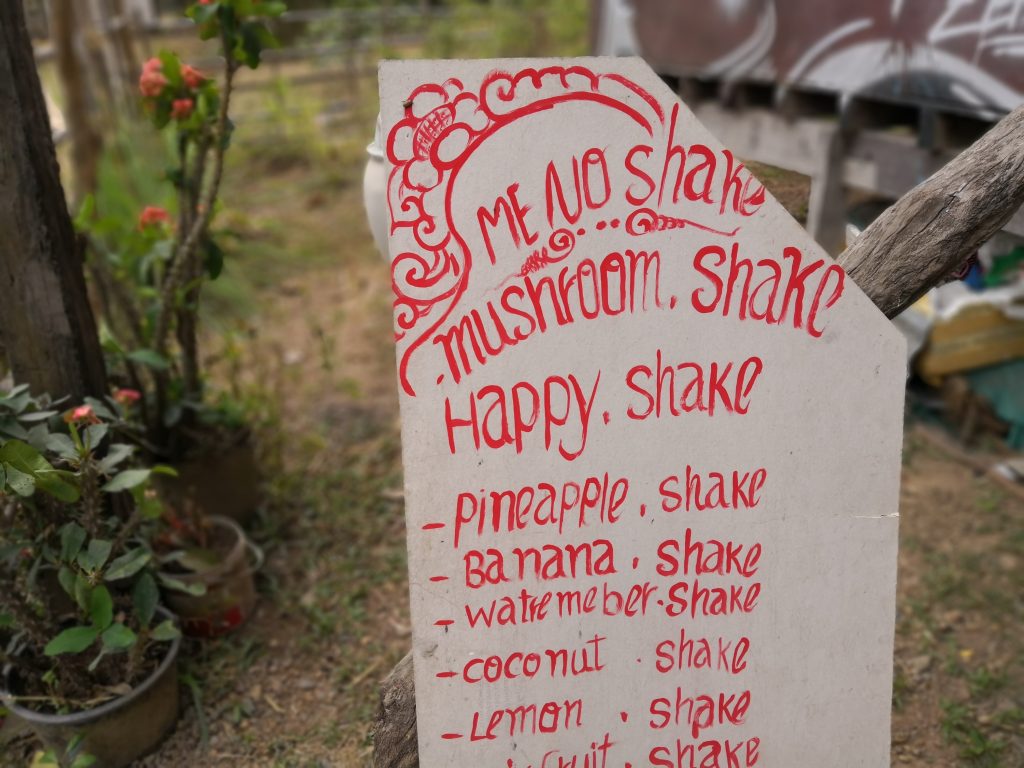 ME NO shake
mushroom. Shake
Happy. shake
- Pineapple. shake
- Banana. shake
- watremeber. shake
- coconut. shake
- Lemon. shake
fruit. shake